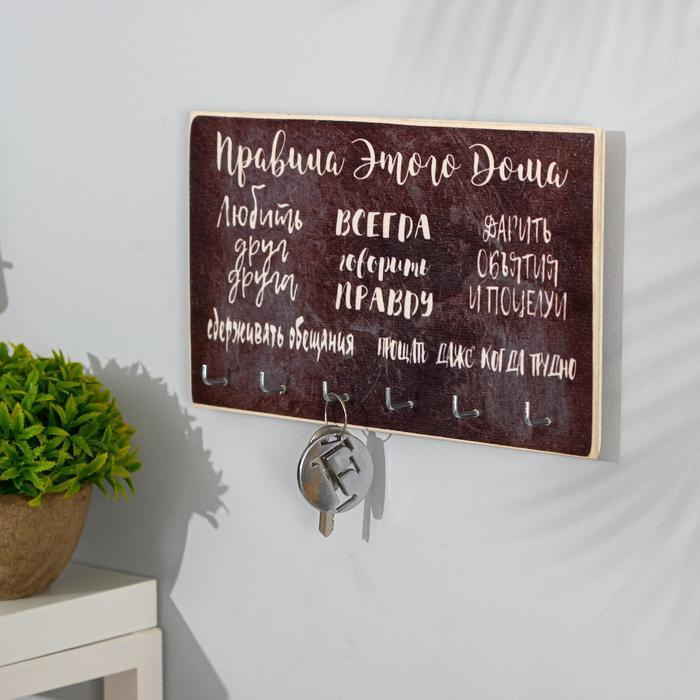 Правила Этого Дома
Любить
друг
друга
ВСЕГДА
говорить
ПРАВДУ
ДАРИТЬ
ОБЪЯТИЯ
И ПОЦЕЛУИ
сдерживать обещания
ПРОЩАТЬ ДАЖЕ КОГДА ТРУДНО